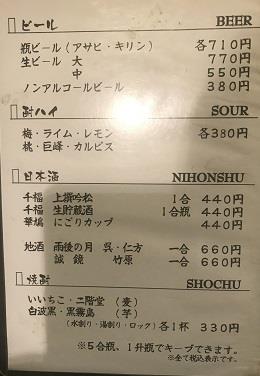 ビール BEER
瓶ビール(アサヒ・キリン) 各710円
生ビール 大 770円
中 550円
ノンアルコールビール 380円
酎ハイ SOUR
梅・ライム・レモン 各380円
桃・巨峰・カルピス
日本酒 NIHONSHU
千福 上撰吟松 1合 440円
千福 生貯蔵酒 1合瓶 440円
華鳩 にごりカップ 440円
地酒 雨後の月 呉・仁方 一合 660円
誠鏡 竹原 一合 660円
焼酎 SHOCHU
いいちこ・二階堂 (麦)
白波黒・黒霧島 (芋)
(水割り・湯割り・ロック) 各1杯 330円
※5合瓶、1升瓶でキープできます。
※全て税込表示です。